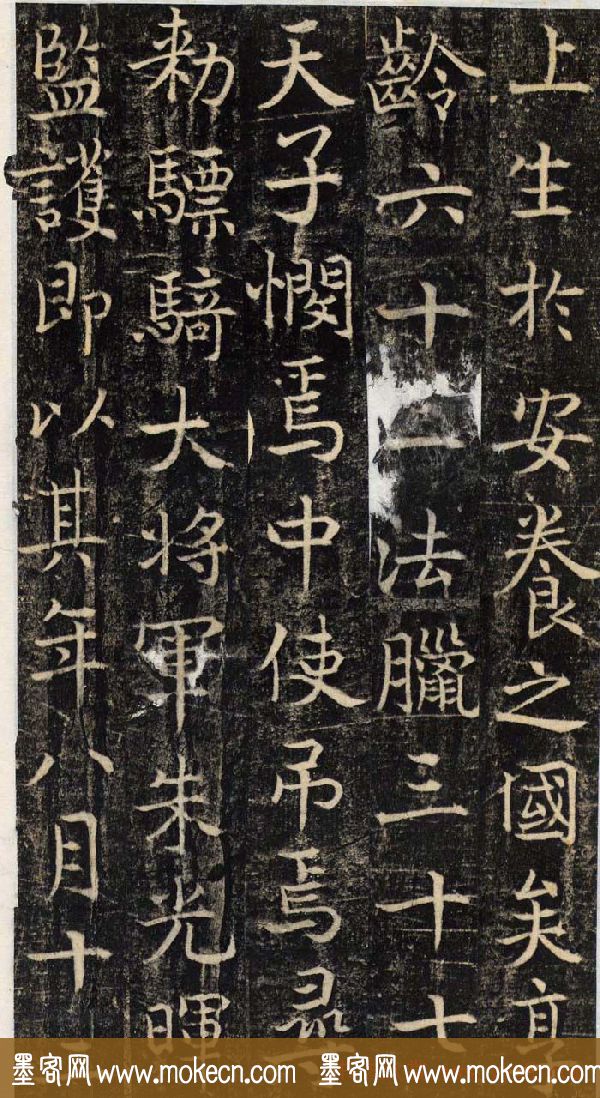 上生於安養之國矣享
齡六十一法臘三十七
天子憫焉中使吊焉尋
勅驃騎大将軍朱光暉
監護即以其年八月十
墨客网 www.mokecn.com 墨客网 www.mokecn.com